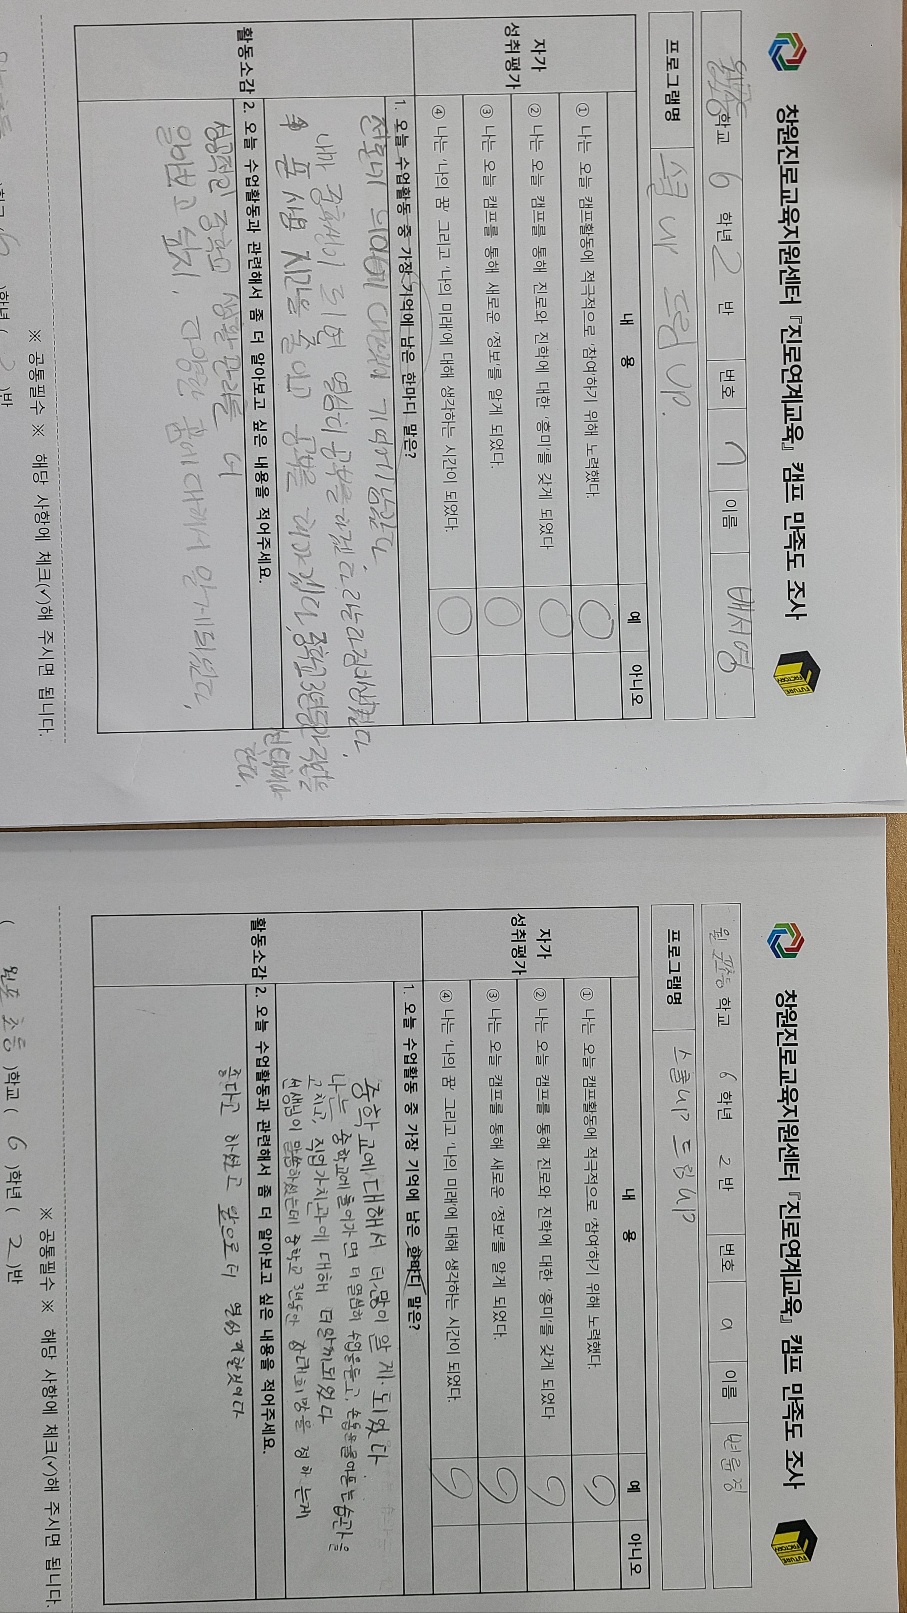 창원진로교육지원센터 『진로연계교육』 캠프 만족도 조사
FUTURE FACTORY
학교 6 학년 2 반 번호 7 이름 배서영
프로그램명 스쿨 나비 드림 UP.
내 용 예 아니오
자가 성취평가
① 나는 오늘 캠프활동에 적극적으로 '참여'하기 위해 노력했다. ○
② 나는 오늘 캠프를 통해 진로와 진학에 대한 '흥미'를 갖게 되었다 ○
③ 나는 오늘 캠프를 통해 새로운 '정보'를 알게 되었다. ○
④ 나는 '나의 꿈' 그리고 '나의 미래'에 대해 생각하는 시간이 되었다. ○
활동소감
1. 오늘 수업활동 중 가장 기억에 남은 한마디 말은?
기억에 남는다.
내가 중학생이 되면 열심히 공부를 하겠
폰 사용 시간을 줄이고 공부를 해야겠다, 중학교 3년동안
선택해야
한다.
2. 오늘 수업활동과 관련해서 좀 더 알아보고 싶은 내용을 적어주세요.
중학교 생활 관리를 더
알아보고 싶지, 다양한 꿈에 대해서 알게되었다,
※ 공통필수 ※ 해당 사항에 체크(✓)해 주시면 됩니다.
)학년 ( 2 )반
창원진로교육지원센터 『진로연계교육』 캠프 만족도 조사
FUTURE FACTORY
학교 6 학년 2 반 번호 9 이름 변윤정
프로그램명 스쿨나비 드림UP
내 용 예 아니오
자가 성취평가
① 나는 오늘 캠프활동에 적극적으로 '참여'하기 위해 노력했다. ○
② 나는 오늘 캠프를 통해 진로와 진학에 대한 '흥미'를 갖게 되었다 ○
③ 나는 오늘 캠프를 통해 새로운 '정보'를 알게 되었다. ○
④ 나는 '나의 꿈' 그리고 '나의 미래'에 대해 생각하는 시간이 되었다. ○
활동소감
1. 오늘 수업활동 중 가장 기억에 남은 한마디 말은?
중학교에 대해서 더 많이 알게 되었다
나는 중학교에 들어가면 더 열심히 수업을듣고, 손톱을 물어뜯는 습관을
고치고, 직업가치관에 대해 더 알게되었다
선생님이 말씀하셨는데 중학교 3년동안 장래희망을 정하는게
2. 오늘 수업활동과 관련해서 좀 더 알아보고 싶은 내용을 적어주세요.
좋다고 하셨고 앞으로 더 열심히할것이다
※ 공통필수 ※ 해당 사항에 체크(✓)해 주시면 됩니다.
( 월포 초등 )학교 ( 6 )학년 ( 2 )반